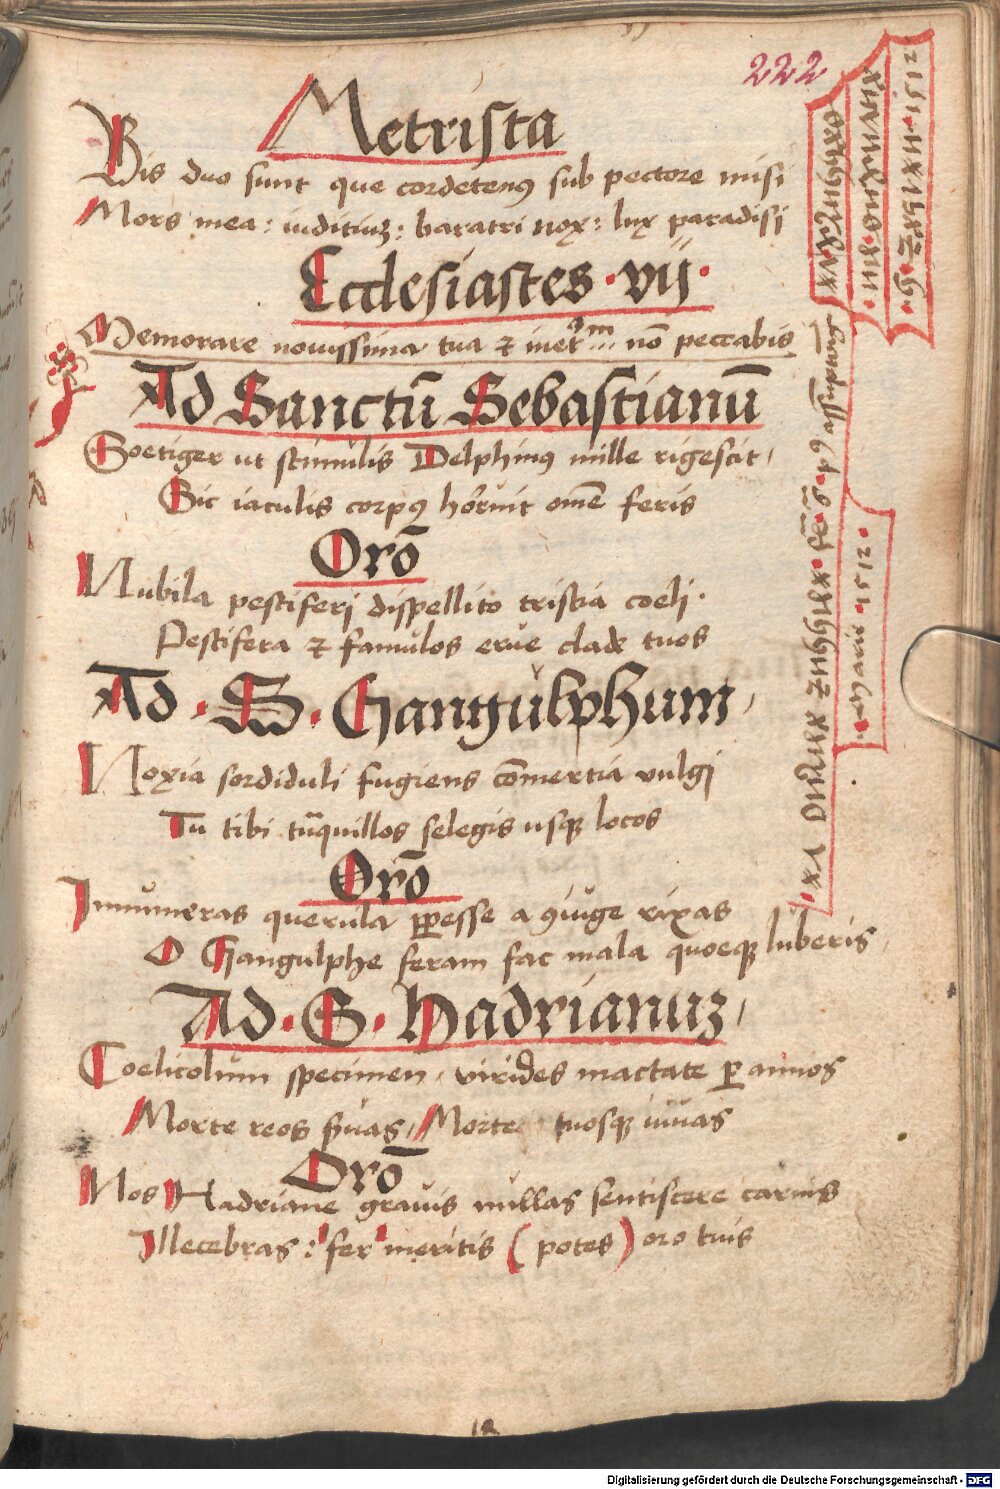 222
Metrista
Bis duo sunt que cordetenꝰ sub pectore misi
Mors mea: iuditiuꝫ: baratri nox: lux paradisi
Ecclesiastes · vij ·
Memorare nouissima tua ⁊ in non peccabis
Ad Sanctū Sebastianū
Soetiger ut stimulis Delphinꝰ mille rigescit
Sic iaculis corpꝰ horruit omē feris
Orō
Nubila pestiferi dispellito tristia coeli ·
Pestifera ⁊ famulos erue clade tuos
Ad · S · Gangulphum
Noxia sordiduli fugiens cōmertia vulgi
Tu tibi tūquillos selegis usqꝫ locos
Orō
Innumeras querula ꝑpesse a ꝯiuge rixas
O Gangulphe feram fac mala quoeqꝫ luberis
Ad · S · Hadrianuꝫ
Coelicolum specimen, virides mactate ꝑ annos
Morte reos, Morte tuosqꝫ iuuas
Orō
Nos Hadriane grauis nullas sentiscere carnis
Illecebras: fer meritis (potes) oro tuis
1512
18
Digitalisierung gefördert durch die Deutsche Forschungsgemeinschaft - DFG